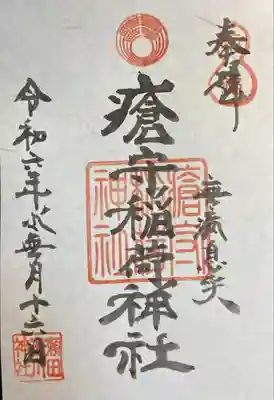 奉拝
無病息災
瘡守稲荷神社
瘡守稲荷神社
令和六年水無月十六日